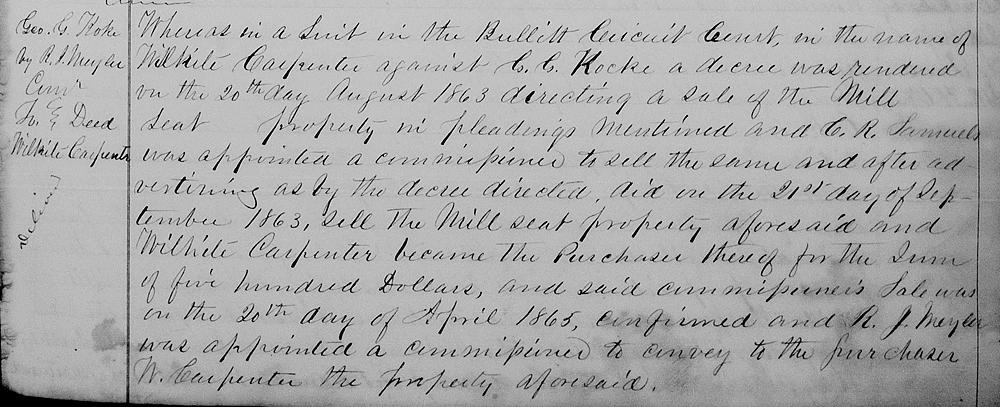 Geo. G. Koke
by R. J. Meyler
Comr
To } Deed
Wilhite Carpenter
Delivd
Whereas in a Suit in the Bullitt Circuit Court, in the name of
Wilhite Carpenter against G. G. Kocke a decree was rendered
on the 20th day August 1863 directing a sale of the Mill
seat property in pleadings mentioned and C. R. Samuels
was appointed a commissioner to sell the same and after ad-
vertining as by the decree directed, did on the 21st day of Sep-
tember 1863, sell the Mill seat property aforesaid and
Wilhite Carpenter became the Purchaser thereof for the Sum
of five hundred Dollars, and said commissioners Sale was
on the 20th day of April 1865, confirmed and R. J. Meyler
was appointed a commissioner to convey to the purchaser
W. Carpenter the property aforesaid.